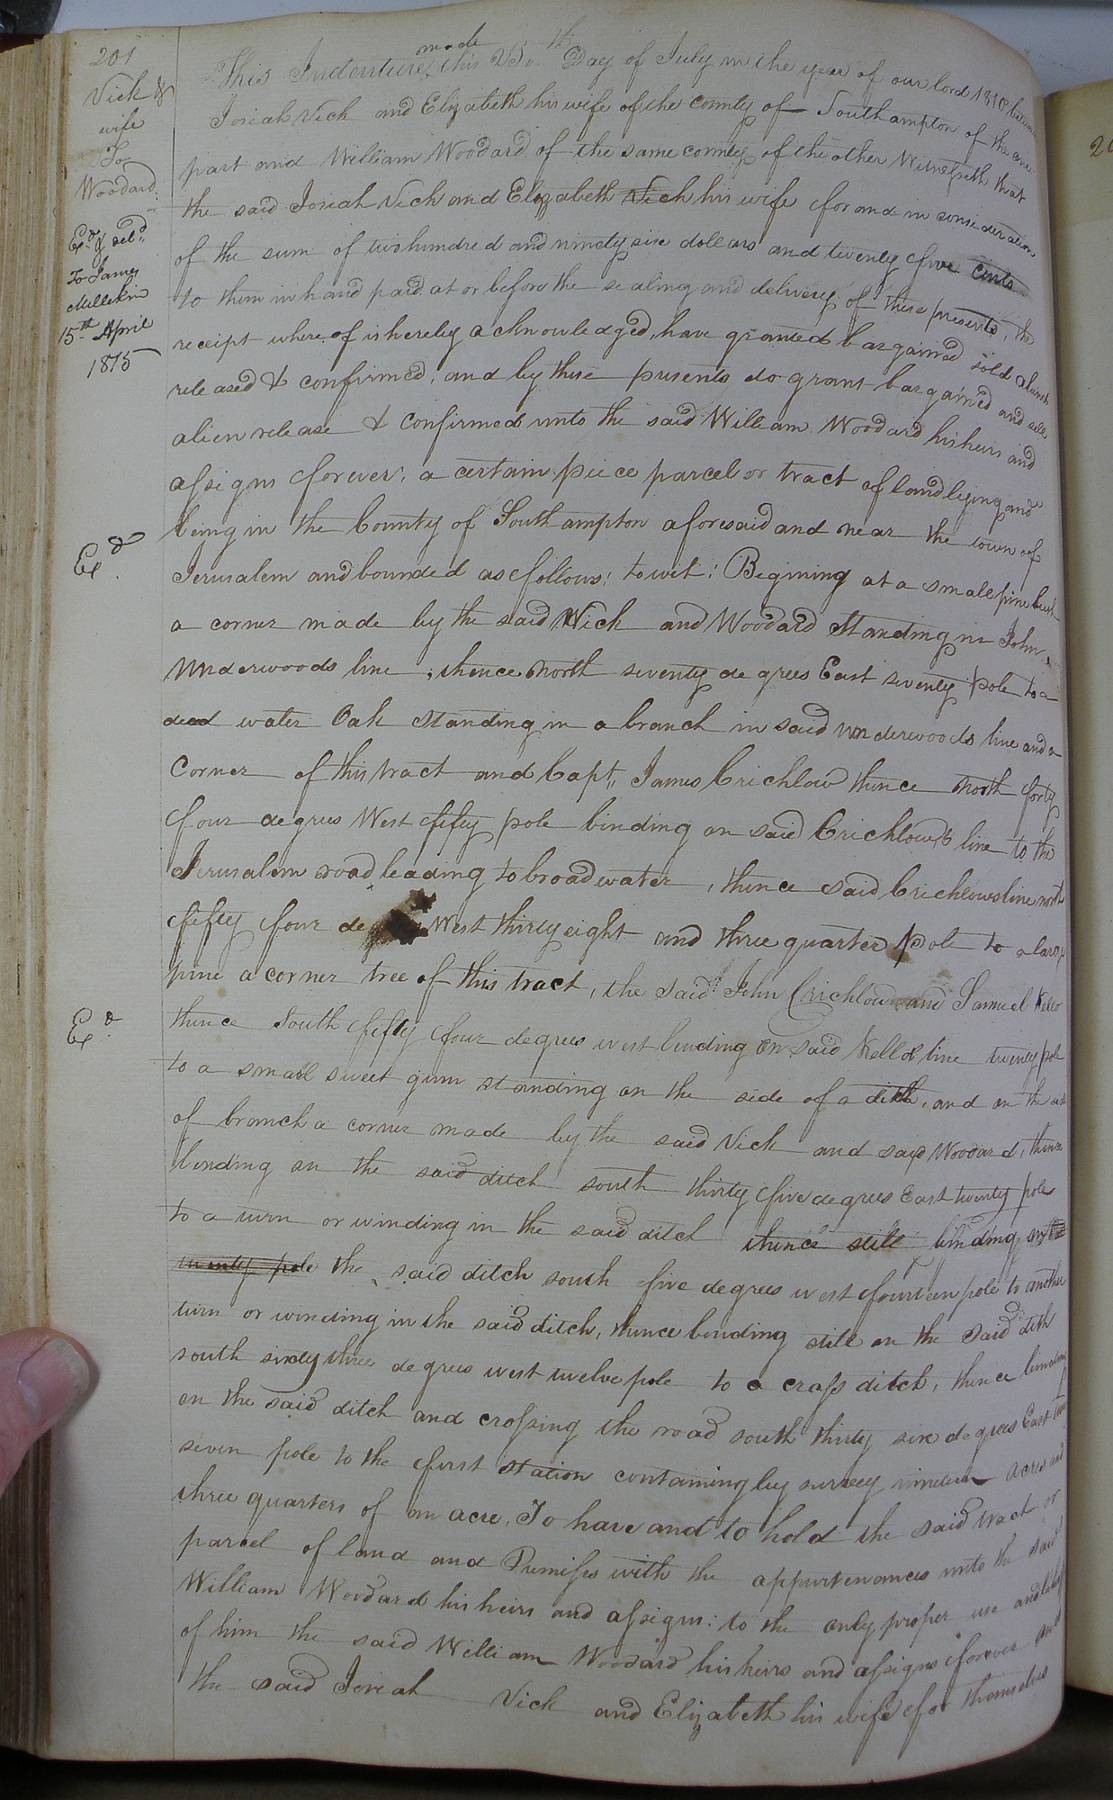 201
Vick &
wife
To
Woodard
Exd & deld
To James
Millikin
15th April
1815
Exd
Exd
This Indenture made this Day of July in the year of our lord 1810 between
Josiah Vick and Elizabeth his wife of the county of Southampton of the one
part and William Woodard of the same county of the other Witnesseth that
the said Josiah Vick and Elizabeth Vick his wife for and in consideration
of the sum of two hundred and ninety six dollars and twenty five cents
to them in hand paid at or before the sealing and delivery of these presents, the
receipt where of is hereby acknowledged, have granted bargained sold aliend
released & confirmed, and by these presents do grant bargained and sell
alien release & confirmed unto the said William Woodard his heirs and
assigns forever, a certain piece parcel or tract of land lying and
being in the County of Southampton aforesaid and near the town of
Jerusalem and bounded as follows: towit: Begining at a small pine bush
a corner made by the said Vick and Woodard Standing in John
Underwoods line, thence North seventy degrees East seventy pole to a
dead water Oak standing in a branch in said underwoods line and a
Corner of this tract and Capt,, James Crichlow thence North forty
four degrees West fifty pole binding on said Crichlows line to the
Jerusalem road leading to broad water, thence said Crichlows line north
fifty four de West thirty eight and three quarter pole to a large
pine a corner tree of this tract, the said John Crichlow and Samuel Kello
thence South fifty four degrees west binding on said Kellos line twenty pole
to a small sweet gum standing on the side of a ditch, and on the
of branch a corner made by the said Vick and said Woodard, thence
binding on the said ditch south thirty five degrees East twenty pole
to a turn or winding in the said ditch thence still binding on
twenty pole the said ditch south five degrees west fourteen pole to another
turn or winding in the said ditch, thence binding still on the said ditch
south sixty three degrees west twelve pole to a cross ditch, thence binding
on the said ditch and crossing the road south thirty six degrees East
seven pole to the first station containing by survey nineteen acres and
three quarters of an acre. To have and to hold the said tract or
parcel of land and Premises with the appurtenances unto the said
William Woodard his heirs and assigns: to the only proper use and behoof
of him the said William Woodard his heirs and assigns forever and
the said Josiah Vick and Elizabeth his wife for themselves